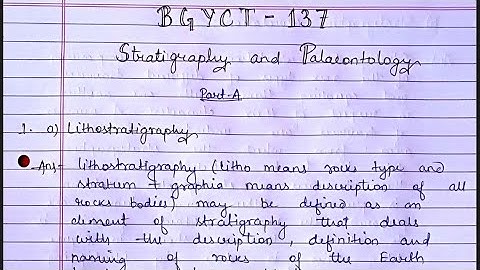 BGYCT - 137
Stratigraphy and Palaeontology
Part-A
1. a) Lithostratigraphy
Ans- Lithostratigraphy (litho means rocks type and
stratum + graphia means description of all
rocks bodies) may be defined as an
element of stratigraphy that deals
with the description, definition and
naming of rocks of the Earth